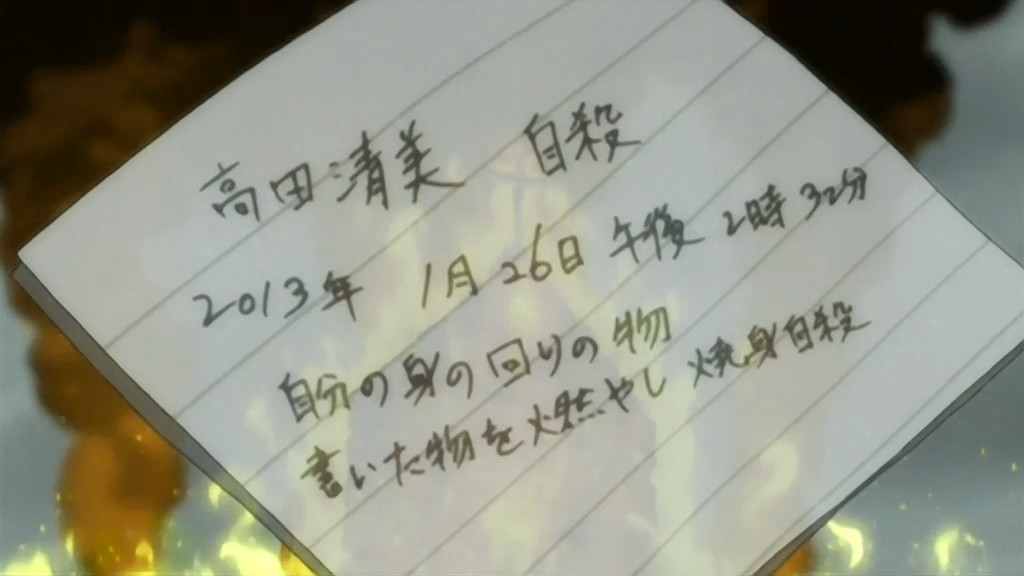 高田清美 自殺
2013年 1月 26日 午後 2時 32分
自分の身の回りの物
書いた物を燃やし 焼身自殺